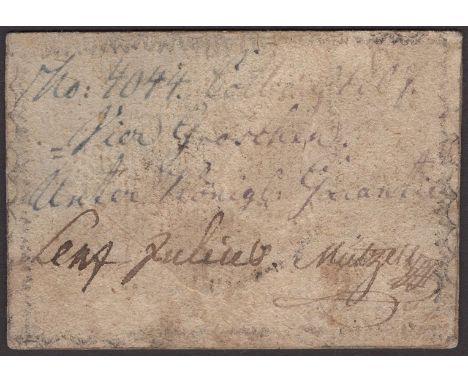 No: 4044. Colberg 1807.
Vier Groschen.
Unter Königl: Guarantie
Lenz Julius. Mützell